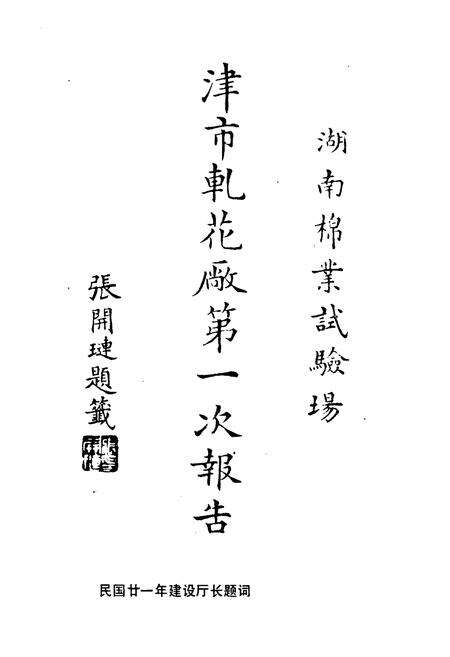 湖南棉業試驗場
津市軋花厰第一次報告
張開璉題籤
民国廿一年建设厅长题词